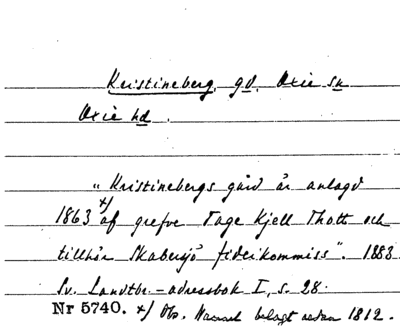 Kristineberg, gd, Oxie sn
Oxie hd.
"Kristinebergs gård är anlagd
1863 x/ af grefve Tage Kjell Thott och
tillhör Skabersjö fideikommiss". 1883.
Sv. Landtbr.-adressbok I, s. 28.
Nr 5740. x/ Obs. Namnet belagt redan 1812.